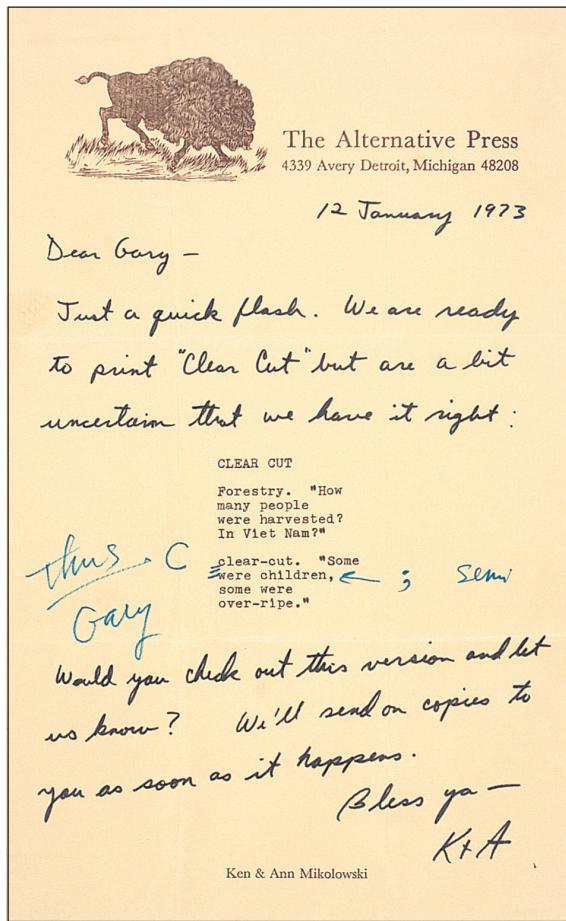 The Alternative Press
4339 Avery Detroit, Michigan 48208
12 January 1973
Dear Gary –
Just a quick flash. We are ready
to print "Clear Cut" but are a bit
uncertain that we have it right:
CLEAR CUT
Forestry. "How
many people
were harvested?
In Viet Nam?"
clear-cut. "Some
were children,
some were
over-ripe."
thus. C
Gary
; semi
Would you check out this version and let
us know? We'll send on copies to
you as soon as it happens.
Bless ya –
K + A
Ken & Ann Mikolowski